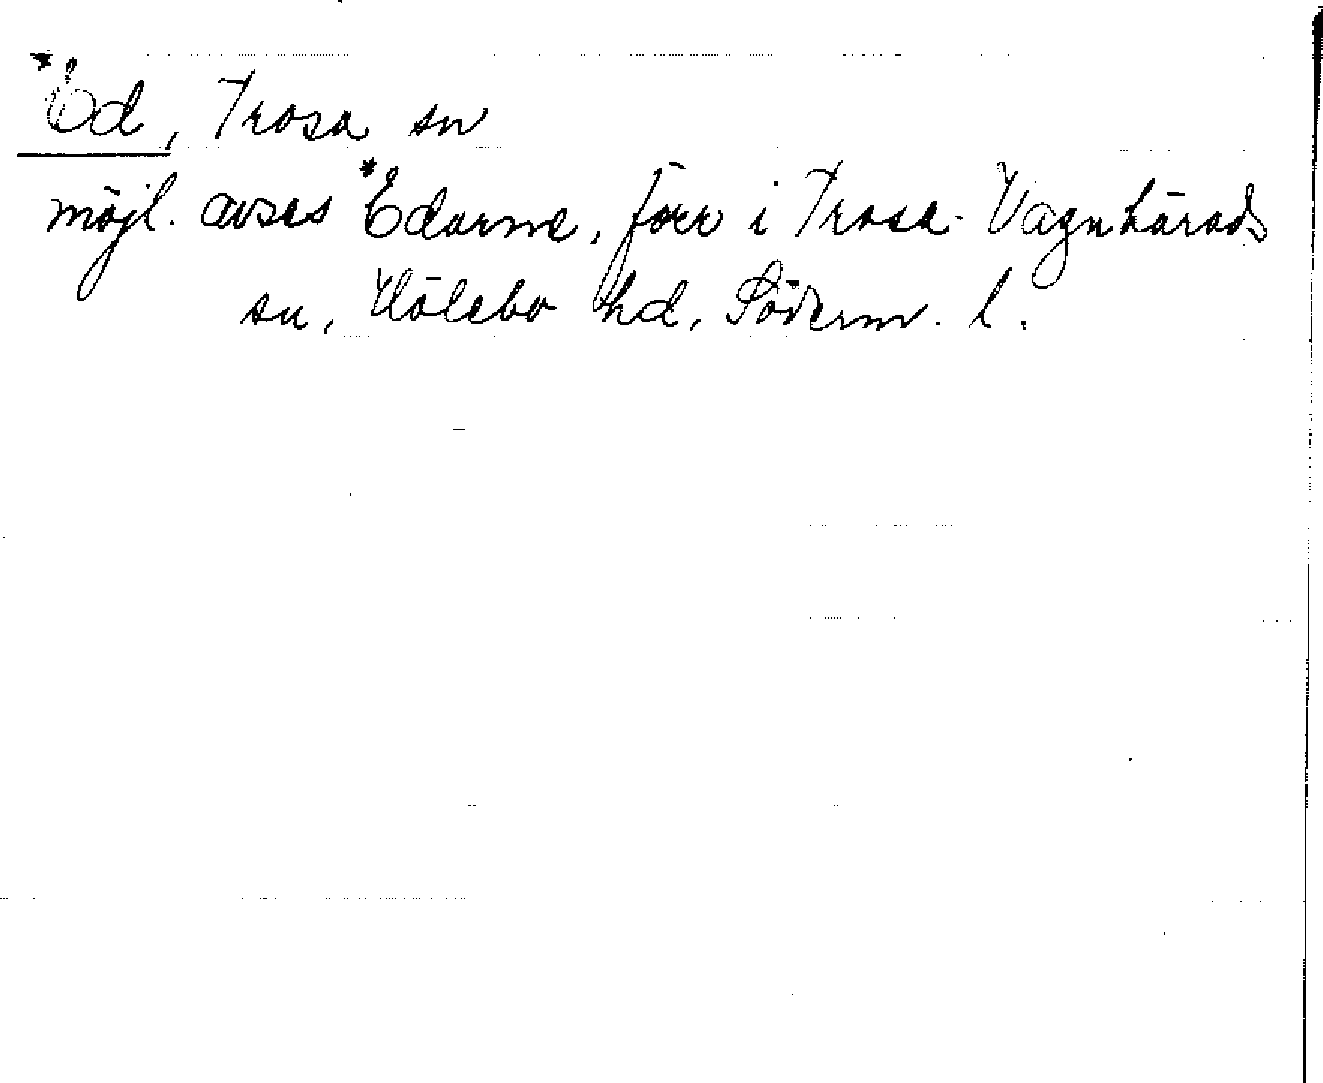 *Ed, Trosa sn
möjl. avses *Edarne, förr i Trosa-Vagnhärads
sn, Hölebo hd, Söderm. l.